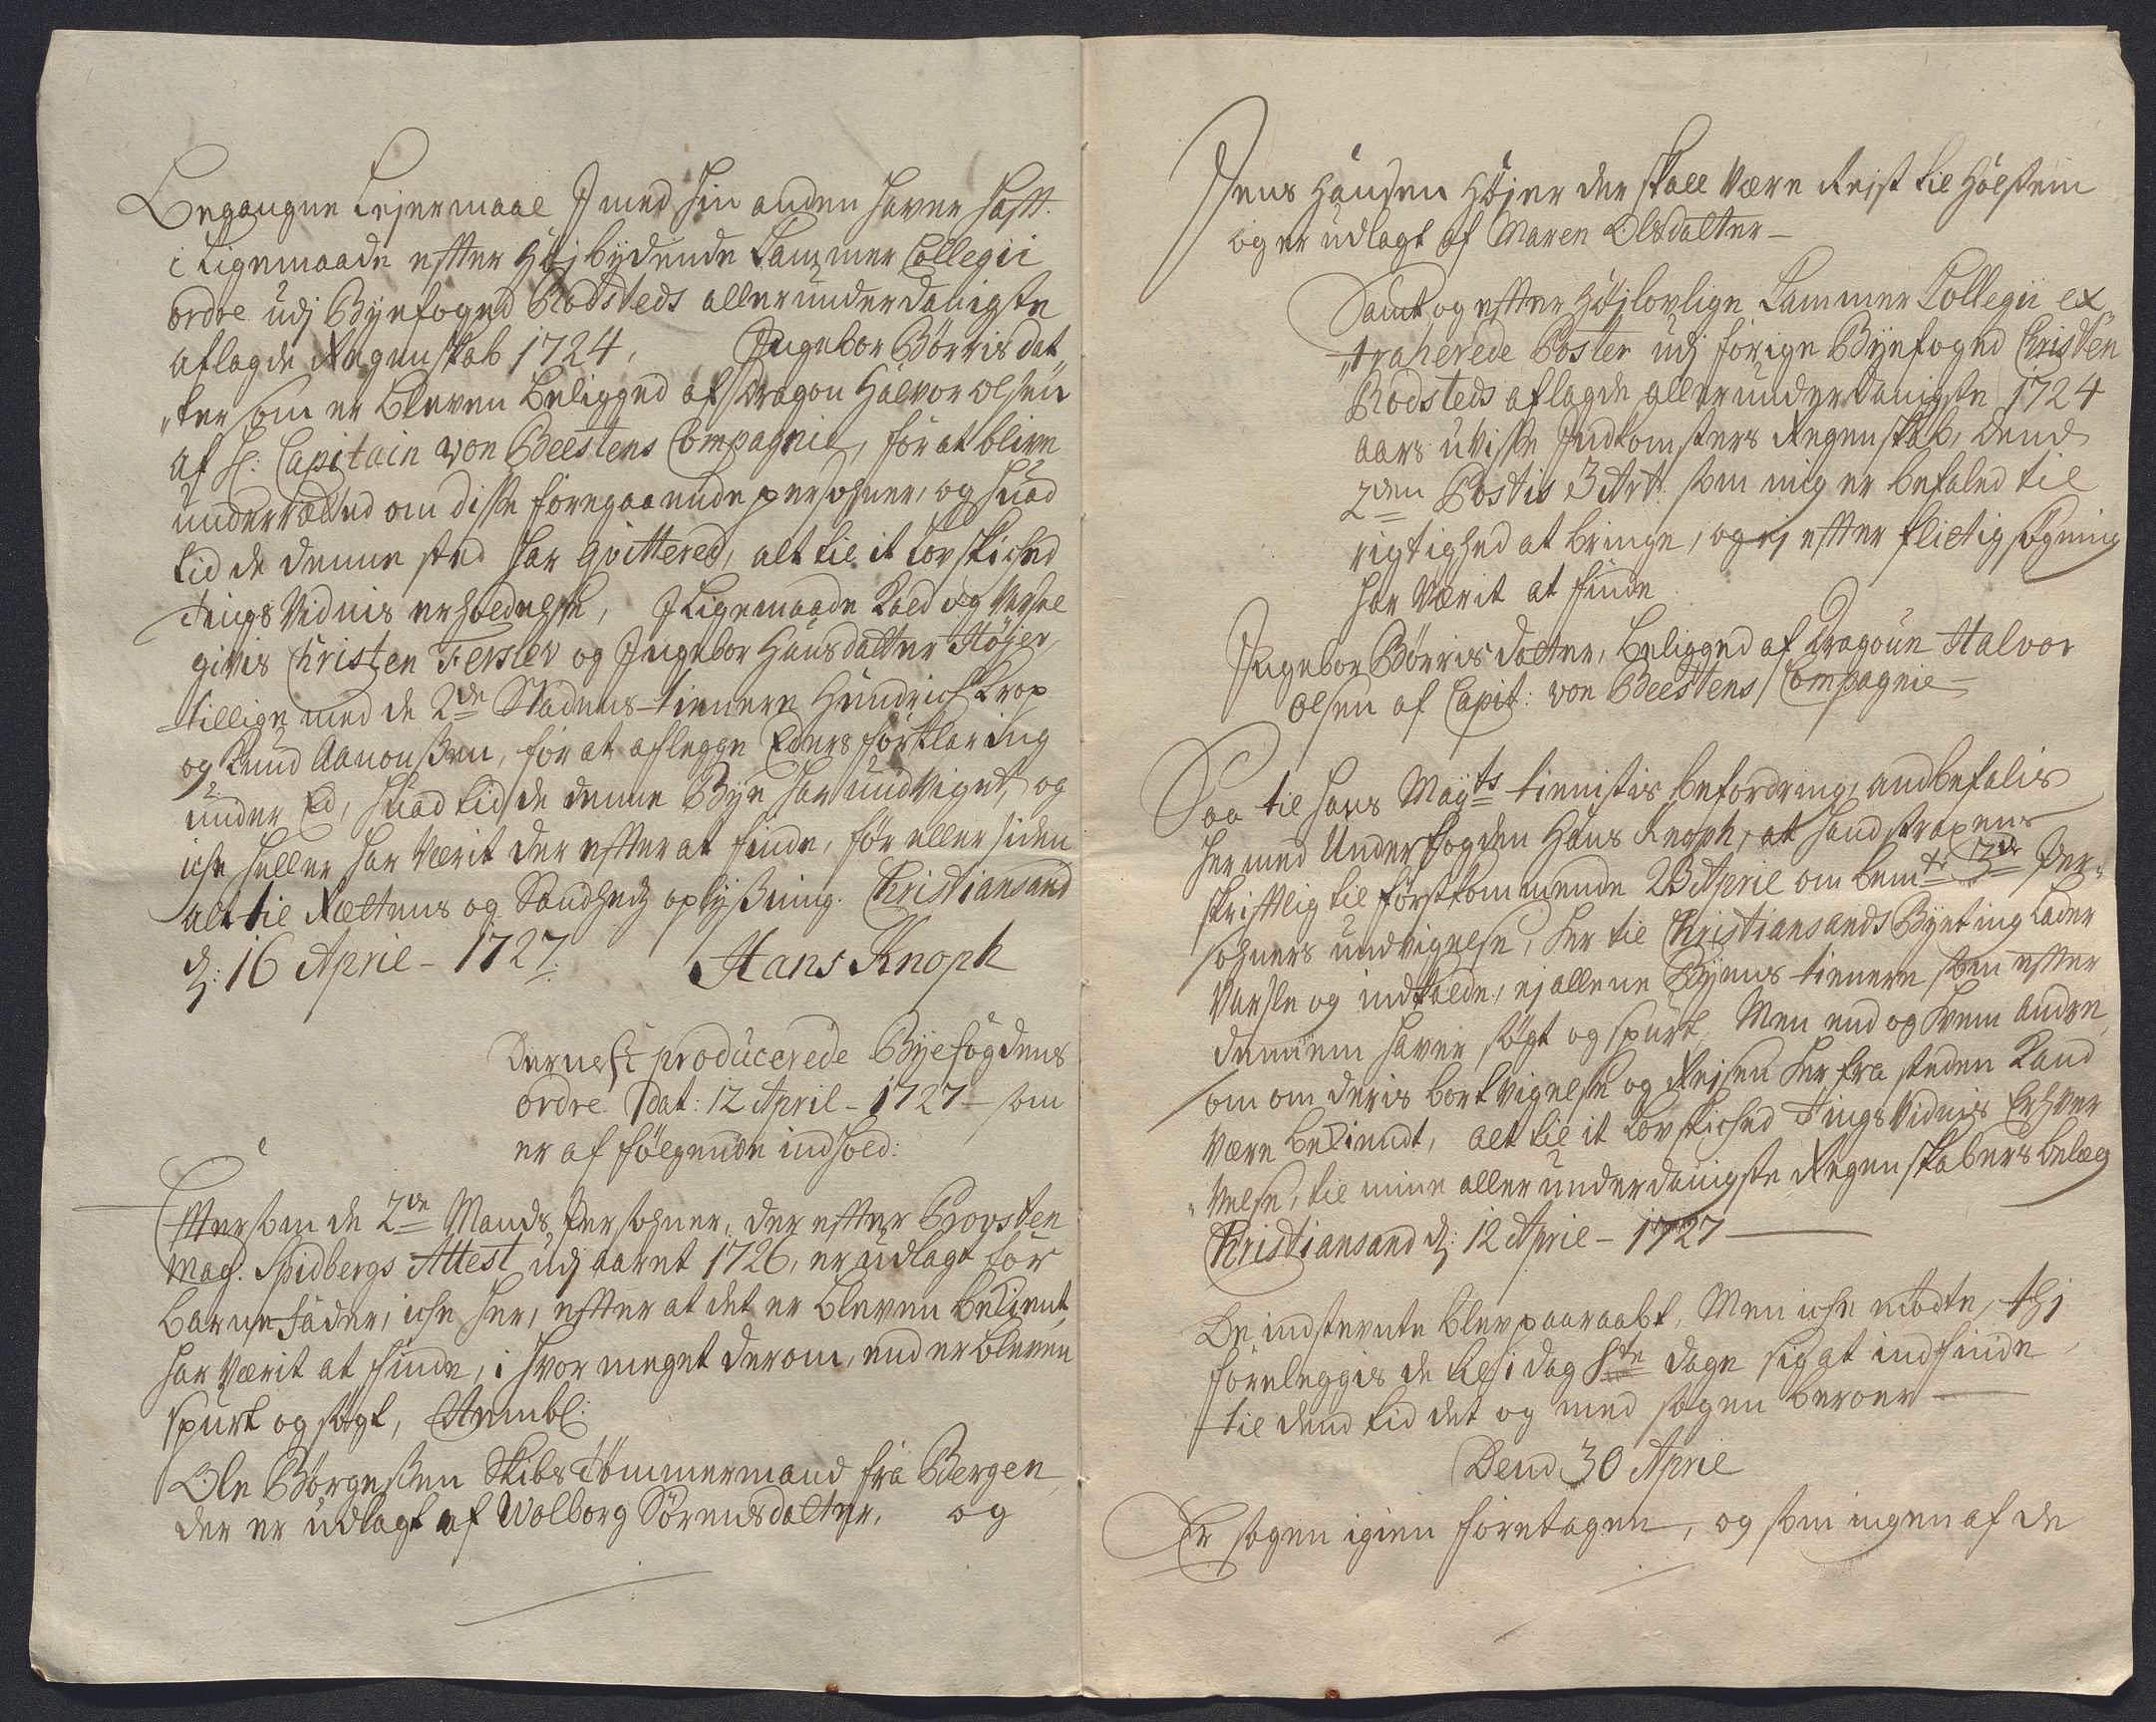 Begangne Lejermaal I med hin anden haver hafft.
i Ligemaade effter Højbydende Cammer Collegii
ordre udj Byefoged Rodsteds allerunderdanigste
aflagde Regenskab 1724, Ingebor Børris dat„
„ter som er bleven beligged af Dragon Halvor Olsen
af H: Capitain von Beestens Compagnie, for at blive
underrætted om disse foregaaende persohner, og hvad
tid de denne sted har qvittered, alt til it lovskicked
Tings Vidnis erholdelse, I Ligemaade Kald og Varsel
givis Christen Ferslev og Ingebor Hansdatter Højer,
tillige med de 2de Stadens-tienere Hendrich Krop
og Knud Aanonssen, for at aflegge Eders forklaring
under Ed, hvad tid de denne Bye har undviget, og
iche heller har Værit der effter at finde, før eller siden
alt til Rettens og Sandhedz oplyssning. Christiansand
d: 16 Aprie - 1727. Hans Knoph
Dernest producerede Byefogdens
ordre dat: 12 April - 1727 - som
er af følgende indhold:
Efftersom de 2de Mands Persohner, der effter Provsten
Mag. Spidbergs Attest udj aaret 1726, er udlagt for
barnefader, iche her, effter at det er bleven bekient,
har Værit at finde, i hvor meget derom, end er bleven
spurt og søgt, Nembl:
Ole Børgessen Skibs Tømmermand fra Bergen
der er udlagt af Wolborg Sørensdatter, og
Jens Hansen Højer der skall være Rejst til Holstein
og er udlagt af Maren Olsdatter -
Samt og effter Højlovlige Cammer Collegii ex„
„traherede Poster udj forige Byefoged Christen
Rodsteds aflagde allerunderdanigste 1724
aars uvisse Indkomsters Regenskab, Dend
2den Postis 3 Art: som mig er befaled til
rigtighed at bringe, og ej effter flictig søgning
har Værit at finde
Ingebor Børris datter, beligged af Dragoun Halvor
Olsen af Capit: von Beestens Compagnie -
Saa til hans Mayts tienistis befordring, andbefalis
hermed Underfogden Hans Knoph, at hand straxens
skrifftlig til førstkommende 23 Aprie om bemte 3de Per„
sohners undvigelse, her til Christiansands Byeting lader
Varsle og indkalde, ej allene Byens-tienere som effter
dennem haver søgt og spurt, Men end og hvem andre,
som om deris bortvigelse og Rejsen her fra steden kand
være bekiendt, alt til it lovskicked Tings Vidnis Erhver
„velse, til mine allerunderdanigste Regenskabers belæg
Christiansand d: 12 Aprie - 1727 -
De indstevnte blev paaraabt, Men iche mødte, thi
foreleggis de til i dag 8te dage sig at indfinde,
til dend tid det og med sagen beroer -
Dend 30 Aprie
Er sagen igien foretagen, og som ingen af de